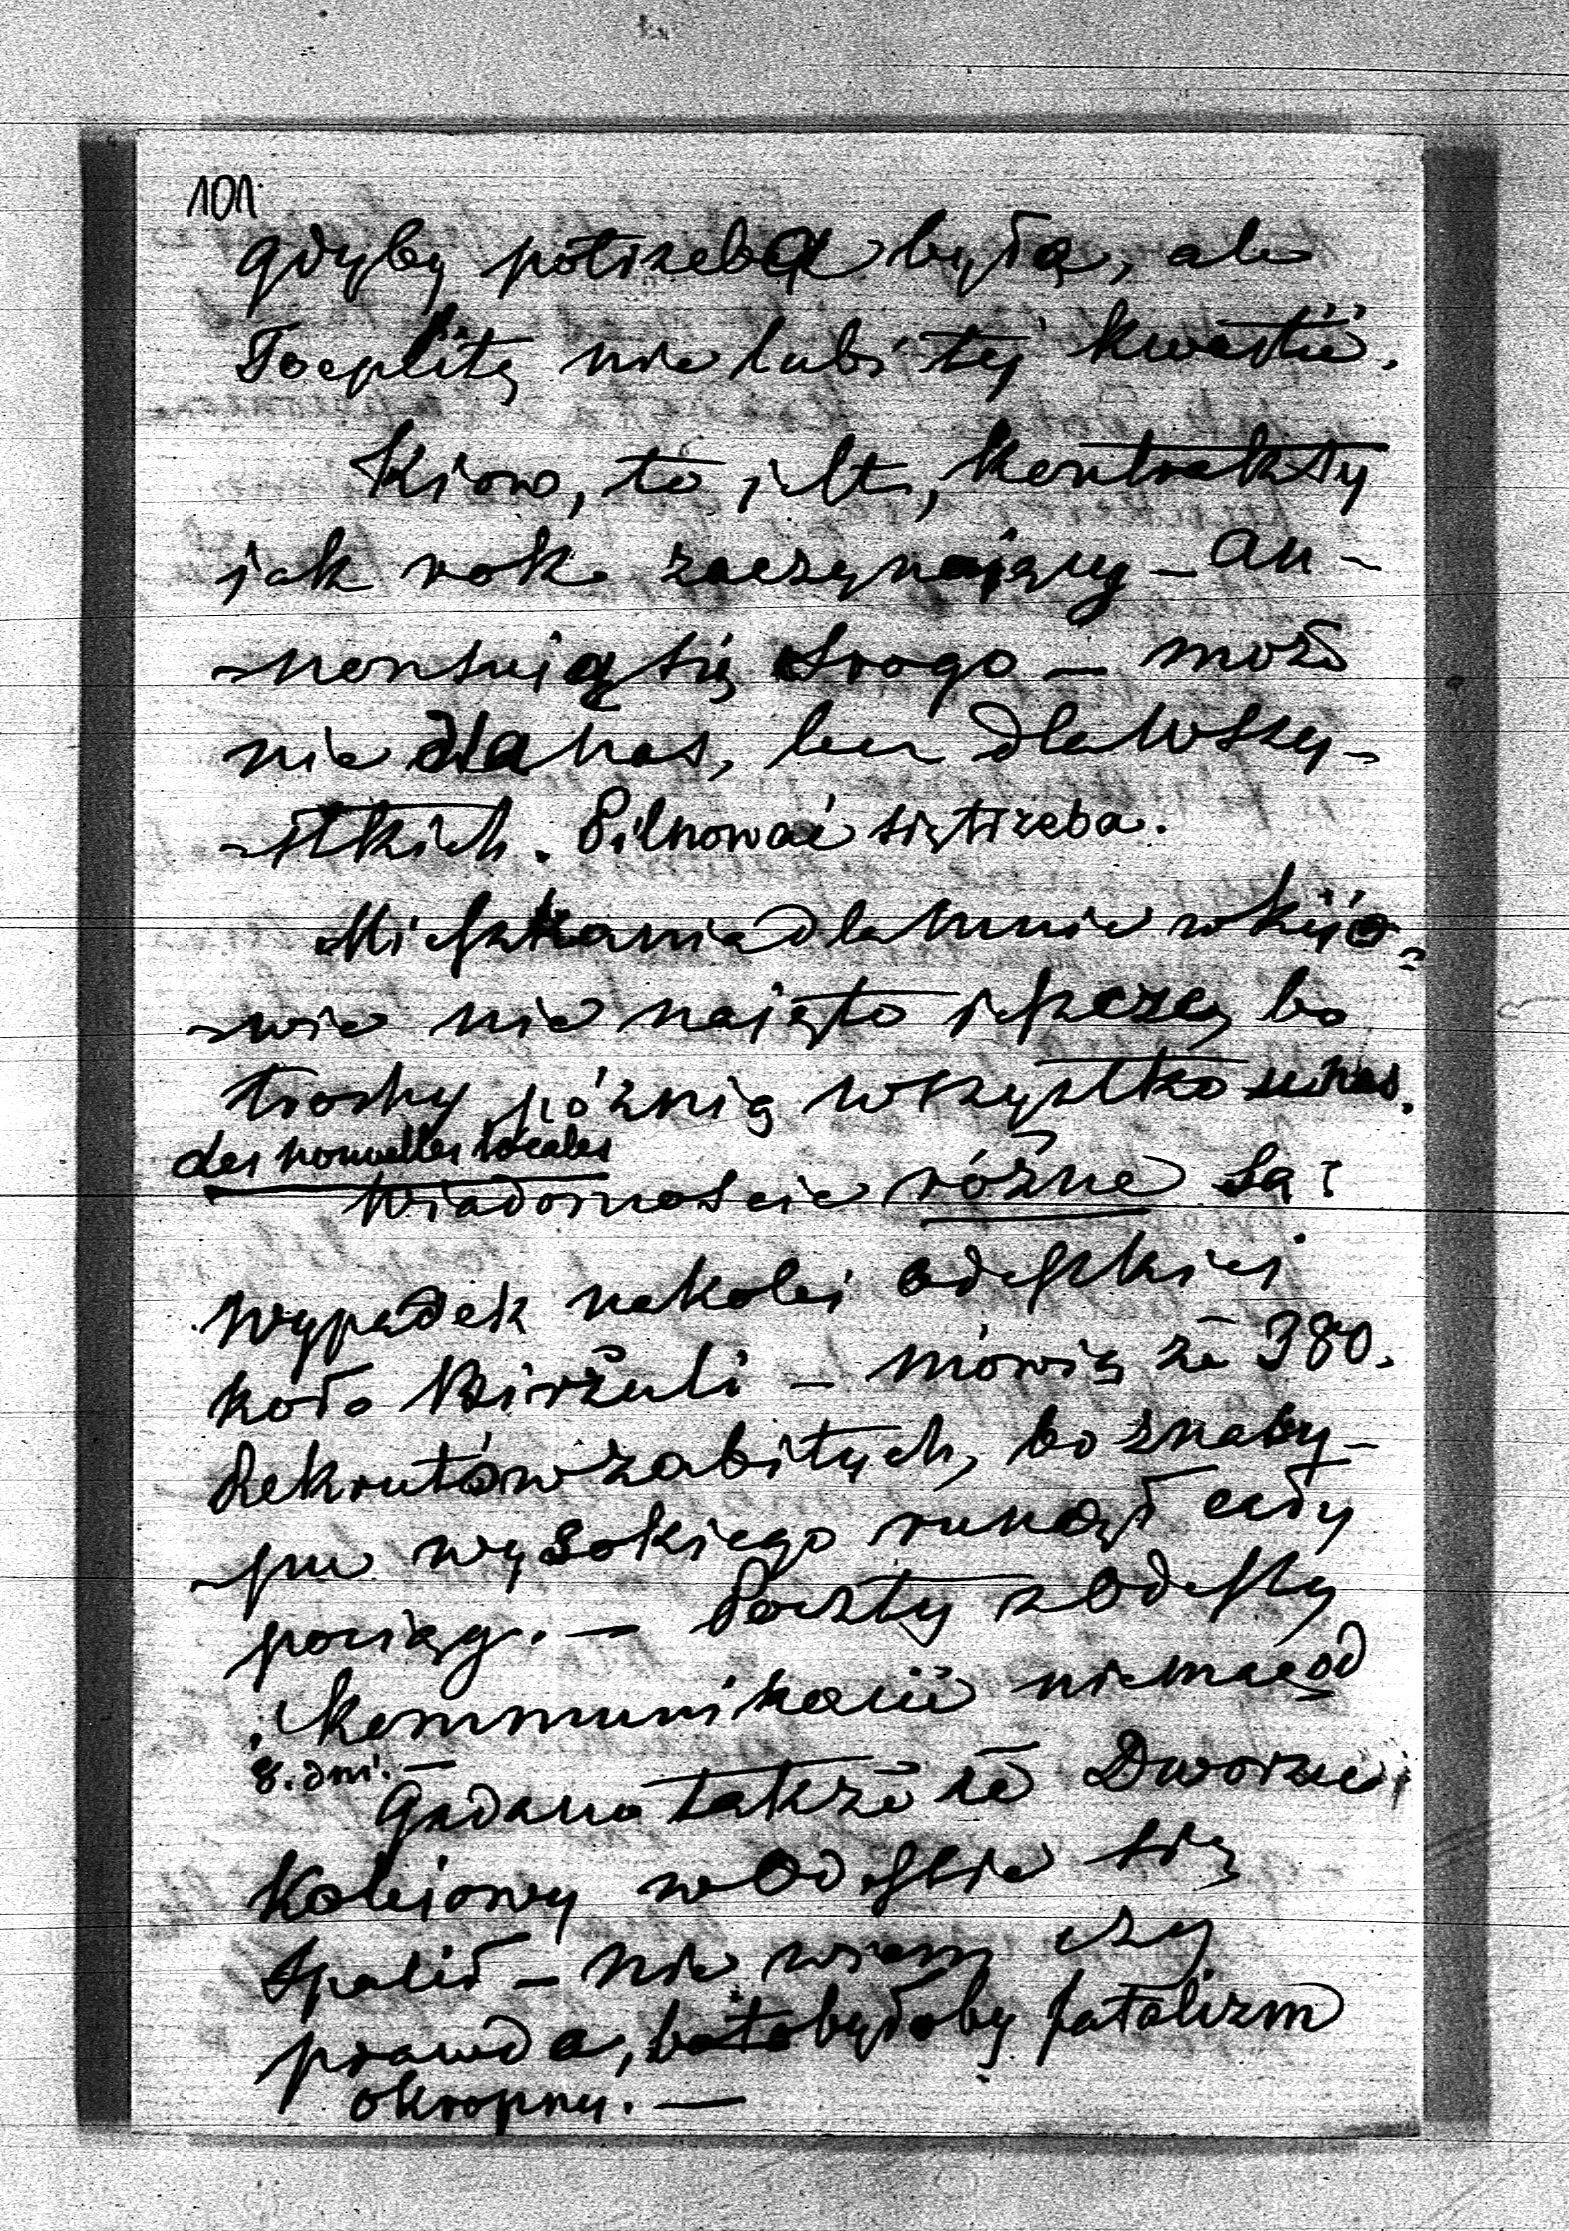 101.
gdyby potrzeba była, ale
Toeplitz nie lubi tej kwestii.
Kiow, to jest, kontrakty
jak rok zaczynający – an-
-nonsują się srogo – może
nie dla nas, lecz dla wszy-
-stkich. Pilnować się trzeba.
Mieszkania dla mnie w Kijo-
-wie nie najęto jeszcze, bo
trochy późnią wszystko u nas.
des nouvelles locales
Wiadomoście różne są:
Wypadek na kolei Odeskiej
koło Birżuli – mówią że 380.
Rekrutów zabitych, bo z nasy-
-pu wysokiego runął cały
pociąg. – Poczty z Odessy
i kommunikacii niema od
8. dni. –
Gadano także że Dworzec
Kolejowy w Odessie się
spalił – nie wiem czy
prawda, bo to byłoby fatalizm
okropny. –